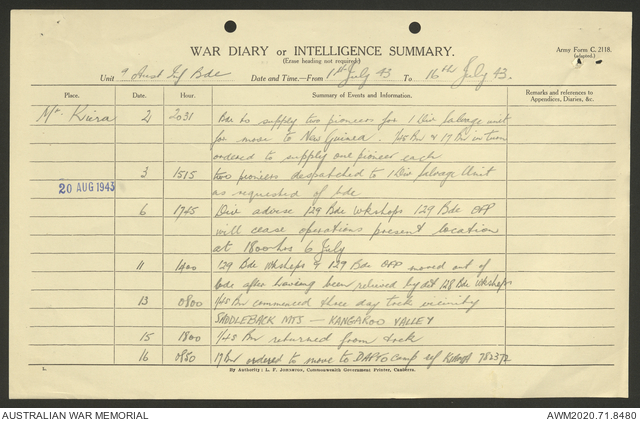 WAR DIARY or INTELLIGENCE SUMMARY.
(Erase heading not required)
Army Form C. 2118.
(Adapted.)
Unit 9 Aust Inf Bde Date and Time.—From 1st July 43 To 16th July 43.
Place. Date. Hour. Summary of Events and Information. Remarks and references to Appendices, Diaries, &c.
Mt. Kiera 2 2031 Bde to supply two pioneers for 1 Div Salvage unit
for move to New Guinea. 1/45 Bn & 17 Bn in turn
ordered to supply one pioneer each
3 1515 two pioneers despatched to 1 Div Salvage Unit
20 AUG 1943
as requested of bde
6 1745 Div advise 129 Bde Wkshops 129 Bde OFP
will cease operations present location
at 1800 hrs 6 July
11 1400 129 Bde Wkshops & 129 Bde OFP moved out of
bde after having been relieved by det 128 Bde Wkshops
13 0800 1/45 Bn commenced three day trek vicinity
SADDLEBACK MTS — KANGAROO VALLEY
15 1800 1/45 Bn returned from trek
16 0850 17 Bn ordered to move to DAPTO camp ref 782372
L. By Authority: L. F. Johnston, Commonwealth Government Printer, Canberra.
AUSTRALIAN WAR MEMORIAL AWM2020.71.8480